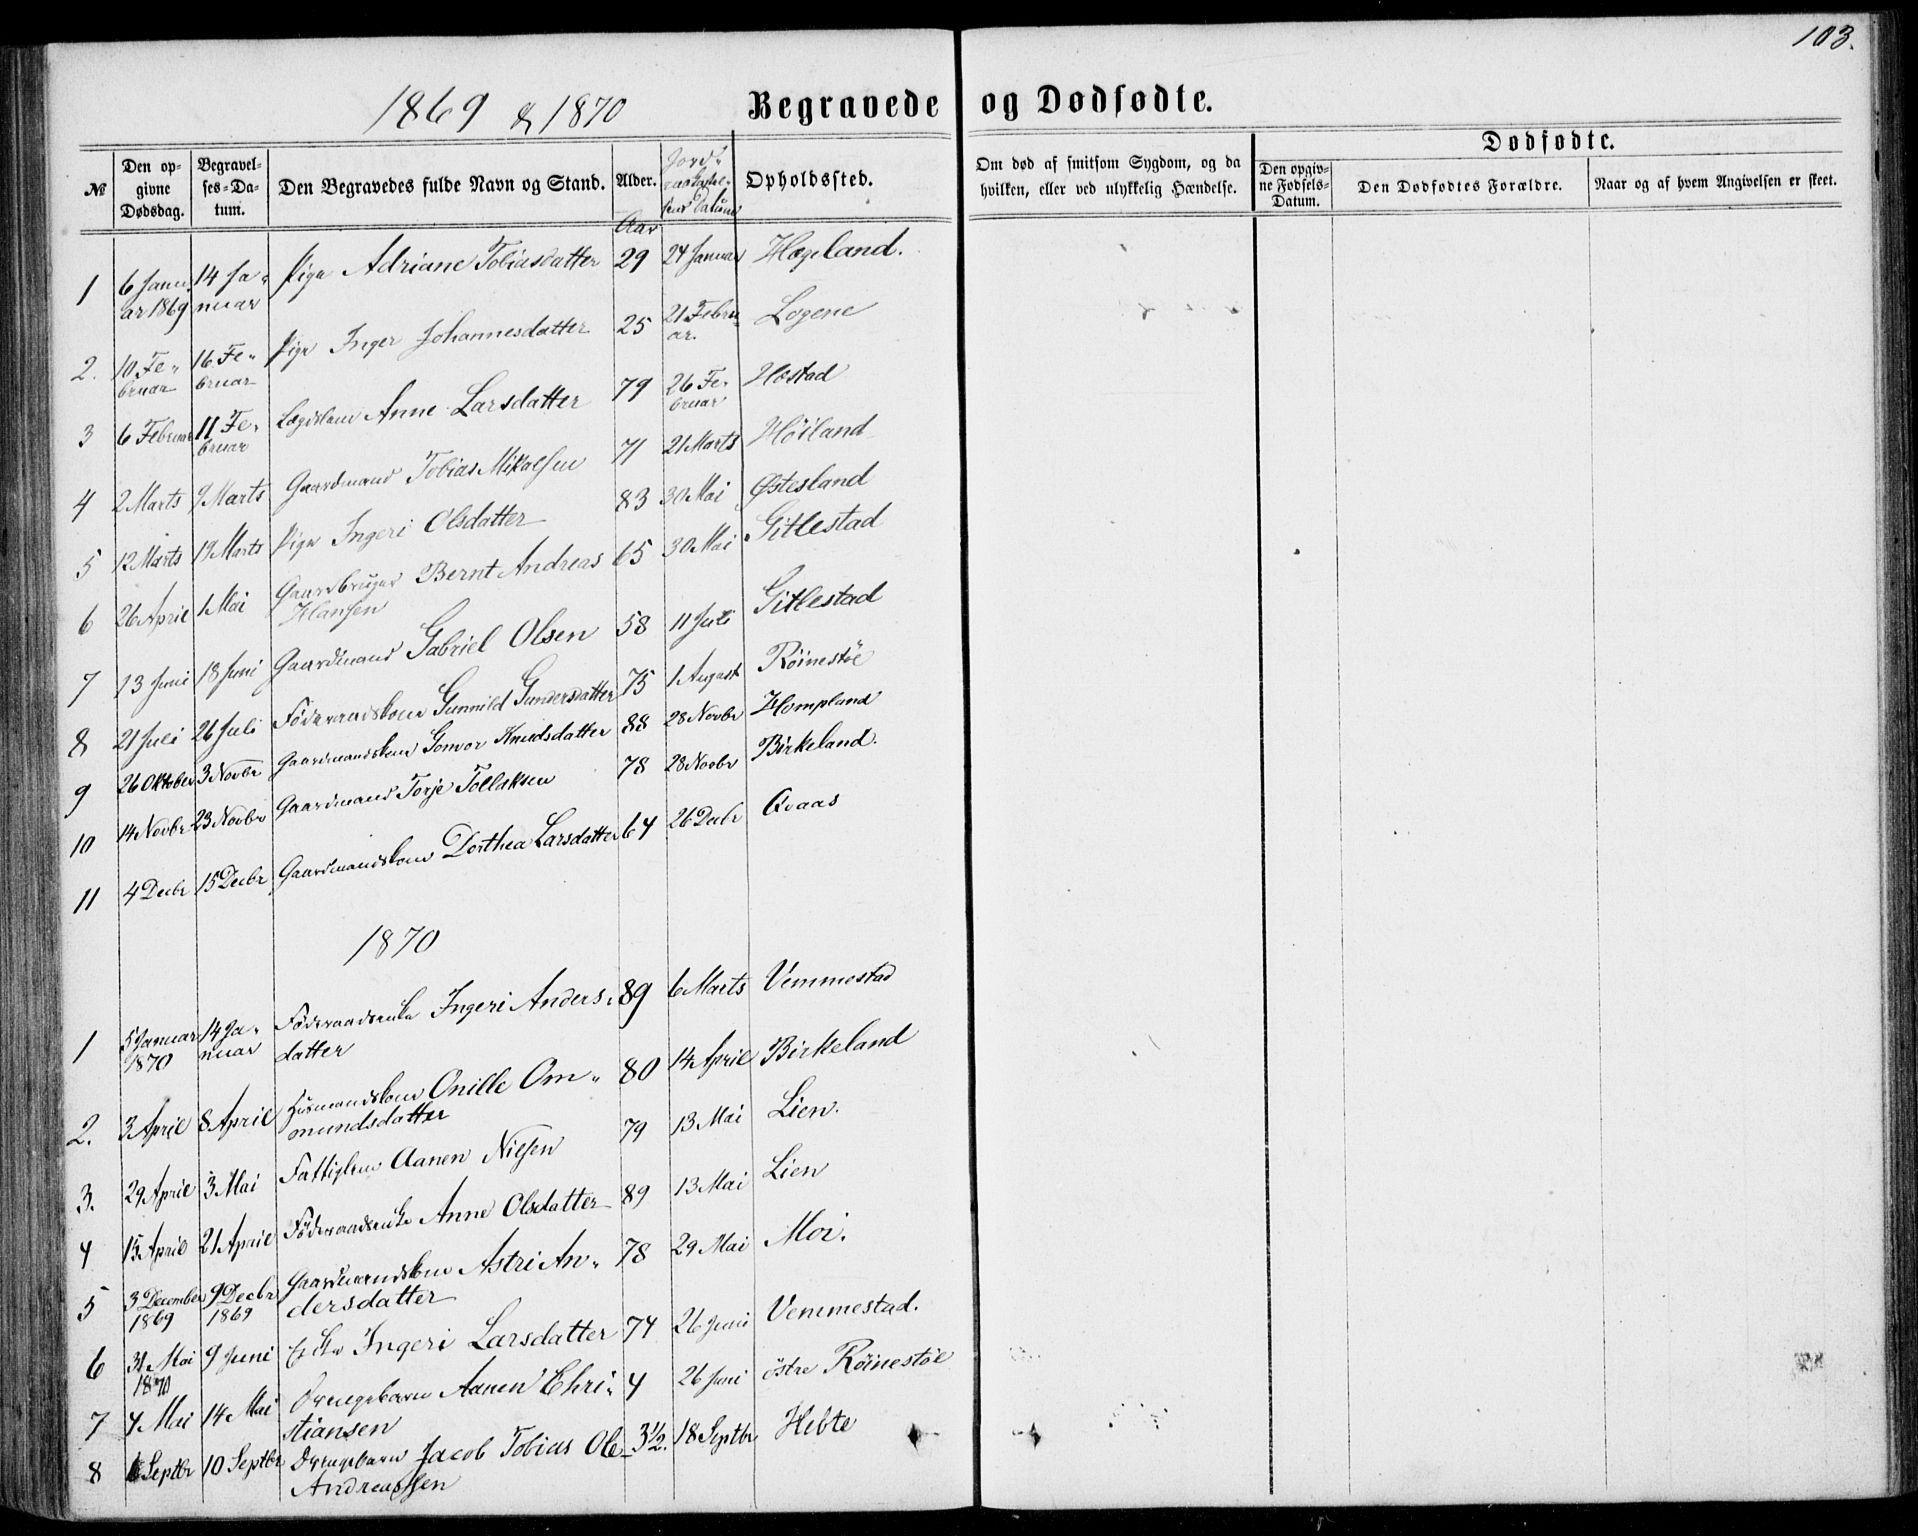 103.
1869 & 1870 Begravede og Dødfødte.
№ Den opgivne Dødsdag. Begravelses-Datum. Den Begravedes fulde Navn og Stand. Alder. Jordpaakastelsens Datum Opholdssted. Om død af smitsom Sygdom, og da hvilken, eller ved ulykkelig Hændelse. Dødfødte. Den opgivne Fødsels-Datum. Den Dødfødtes Forældre. Naar og af hvem Angivelsen er skeet.
Aar
1 6 Januar 1869 14 Januar Pige Adriane Tobiasdatter 29 24 Januar Hægeland.
2. 10 Februar 16 Februar Pige Inger Johannesdatter 25 21 Februar. Logene
3 6 Februar 11 Februar Lægdslem Anne Larsdatter 79 26 Februar Hæstad
4 2 Marts 9 Marts Gaardmand Tobias Mikalsen 71 21 Marts Høiland
5 12 Marts 19 Marts Pige Ingeri Olsdatter 83 30 Mai Østesland
6 26 April 1 Mai Gaardbruger Bernt Andreas Hansen 65 30 Mai Gitlestad
7 13 Juni 18 Juni Gaardmand Gabriel Olsen 58 11 Juli Gitlestad
8 21 Juli 26 Juli Føderaadskone Gunnild Gundersdatter 75 1 August Røinestøe
9 26 Oktober 3 Novbr Gaardmandskone Gonvor Knudsdatter 88 28 Novbr Hompland
10 14 Novbr 23 Novbr Gaardmand Torje Tollaksen 78 28 Novbr Birkeland.
11 4 Decbr 15 Decbr Gaardmandskone Dorthea Larsdatter 64 26 Decbr Avaas
1870
1 5 Januar 1870 14 Januar Føderaadsenke Ingeri Andersdatter 89 6 Marts Vemmestad
2. 3 April 8 April Husmandskone Onille Ommundsdatter 80 14 April Birkeland
3. 29 April 3 Mai Fattiglem Aanen Nilsen 79 13 Mai Lien.
4 15 April 21 April Føderaadsenke Anne Olsdatter 89 13 Mai Lien
5 3 December 1869 9 Decbr 1869 Gaardmandskone Astri Andersdatter 78 29 Mai Moi.
6 31 Mai 1870 9 Juni Enke Ingeri Larsdatter 74 26 Juni Vemmestad.
7 7 Mai 14 Mai Drengebarn Aanen Christiansen 4 26 Juni østre Røinestøe
8 6 Septbr 10 Septbr Drengebarn Jacob Tobias Ole Andreassen 3½. 18 Septbr Hebte